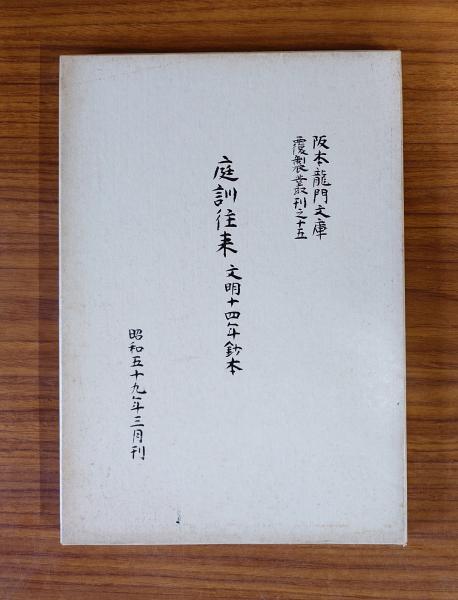 阪本龍門文庫
覆製叢刊之十五
庭訓往来 文明十四年鈔本
昭和五十九年三月刊